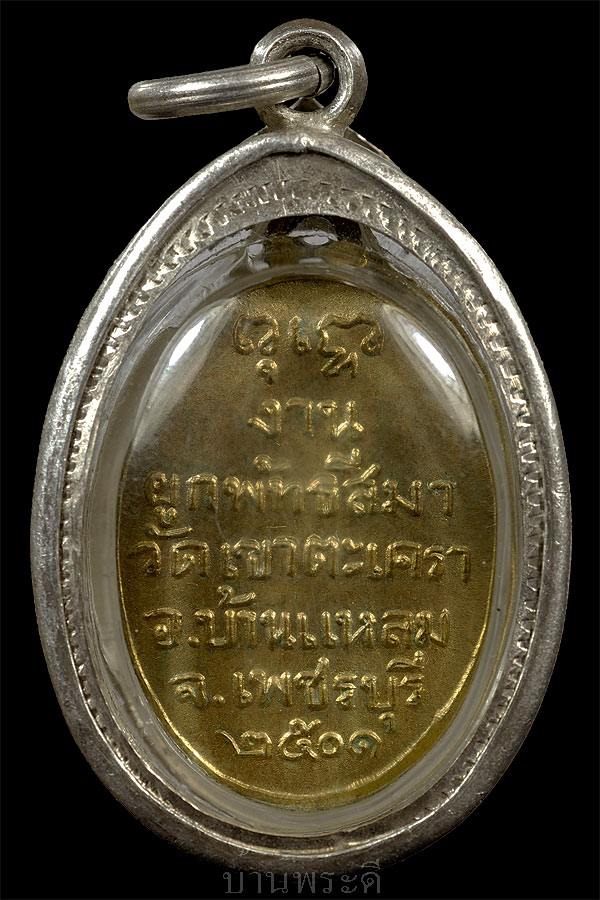 งาน
ผูกพัทธสีมา
วัดเขาตะเครา
อ.บ้านแหลม
จ.เพชรบุรี
๒๕๐๑
บ้านพระดี